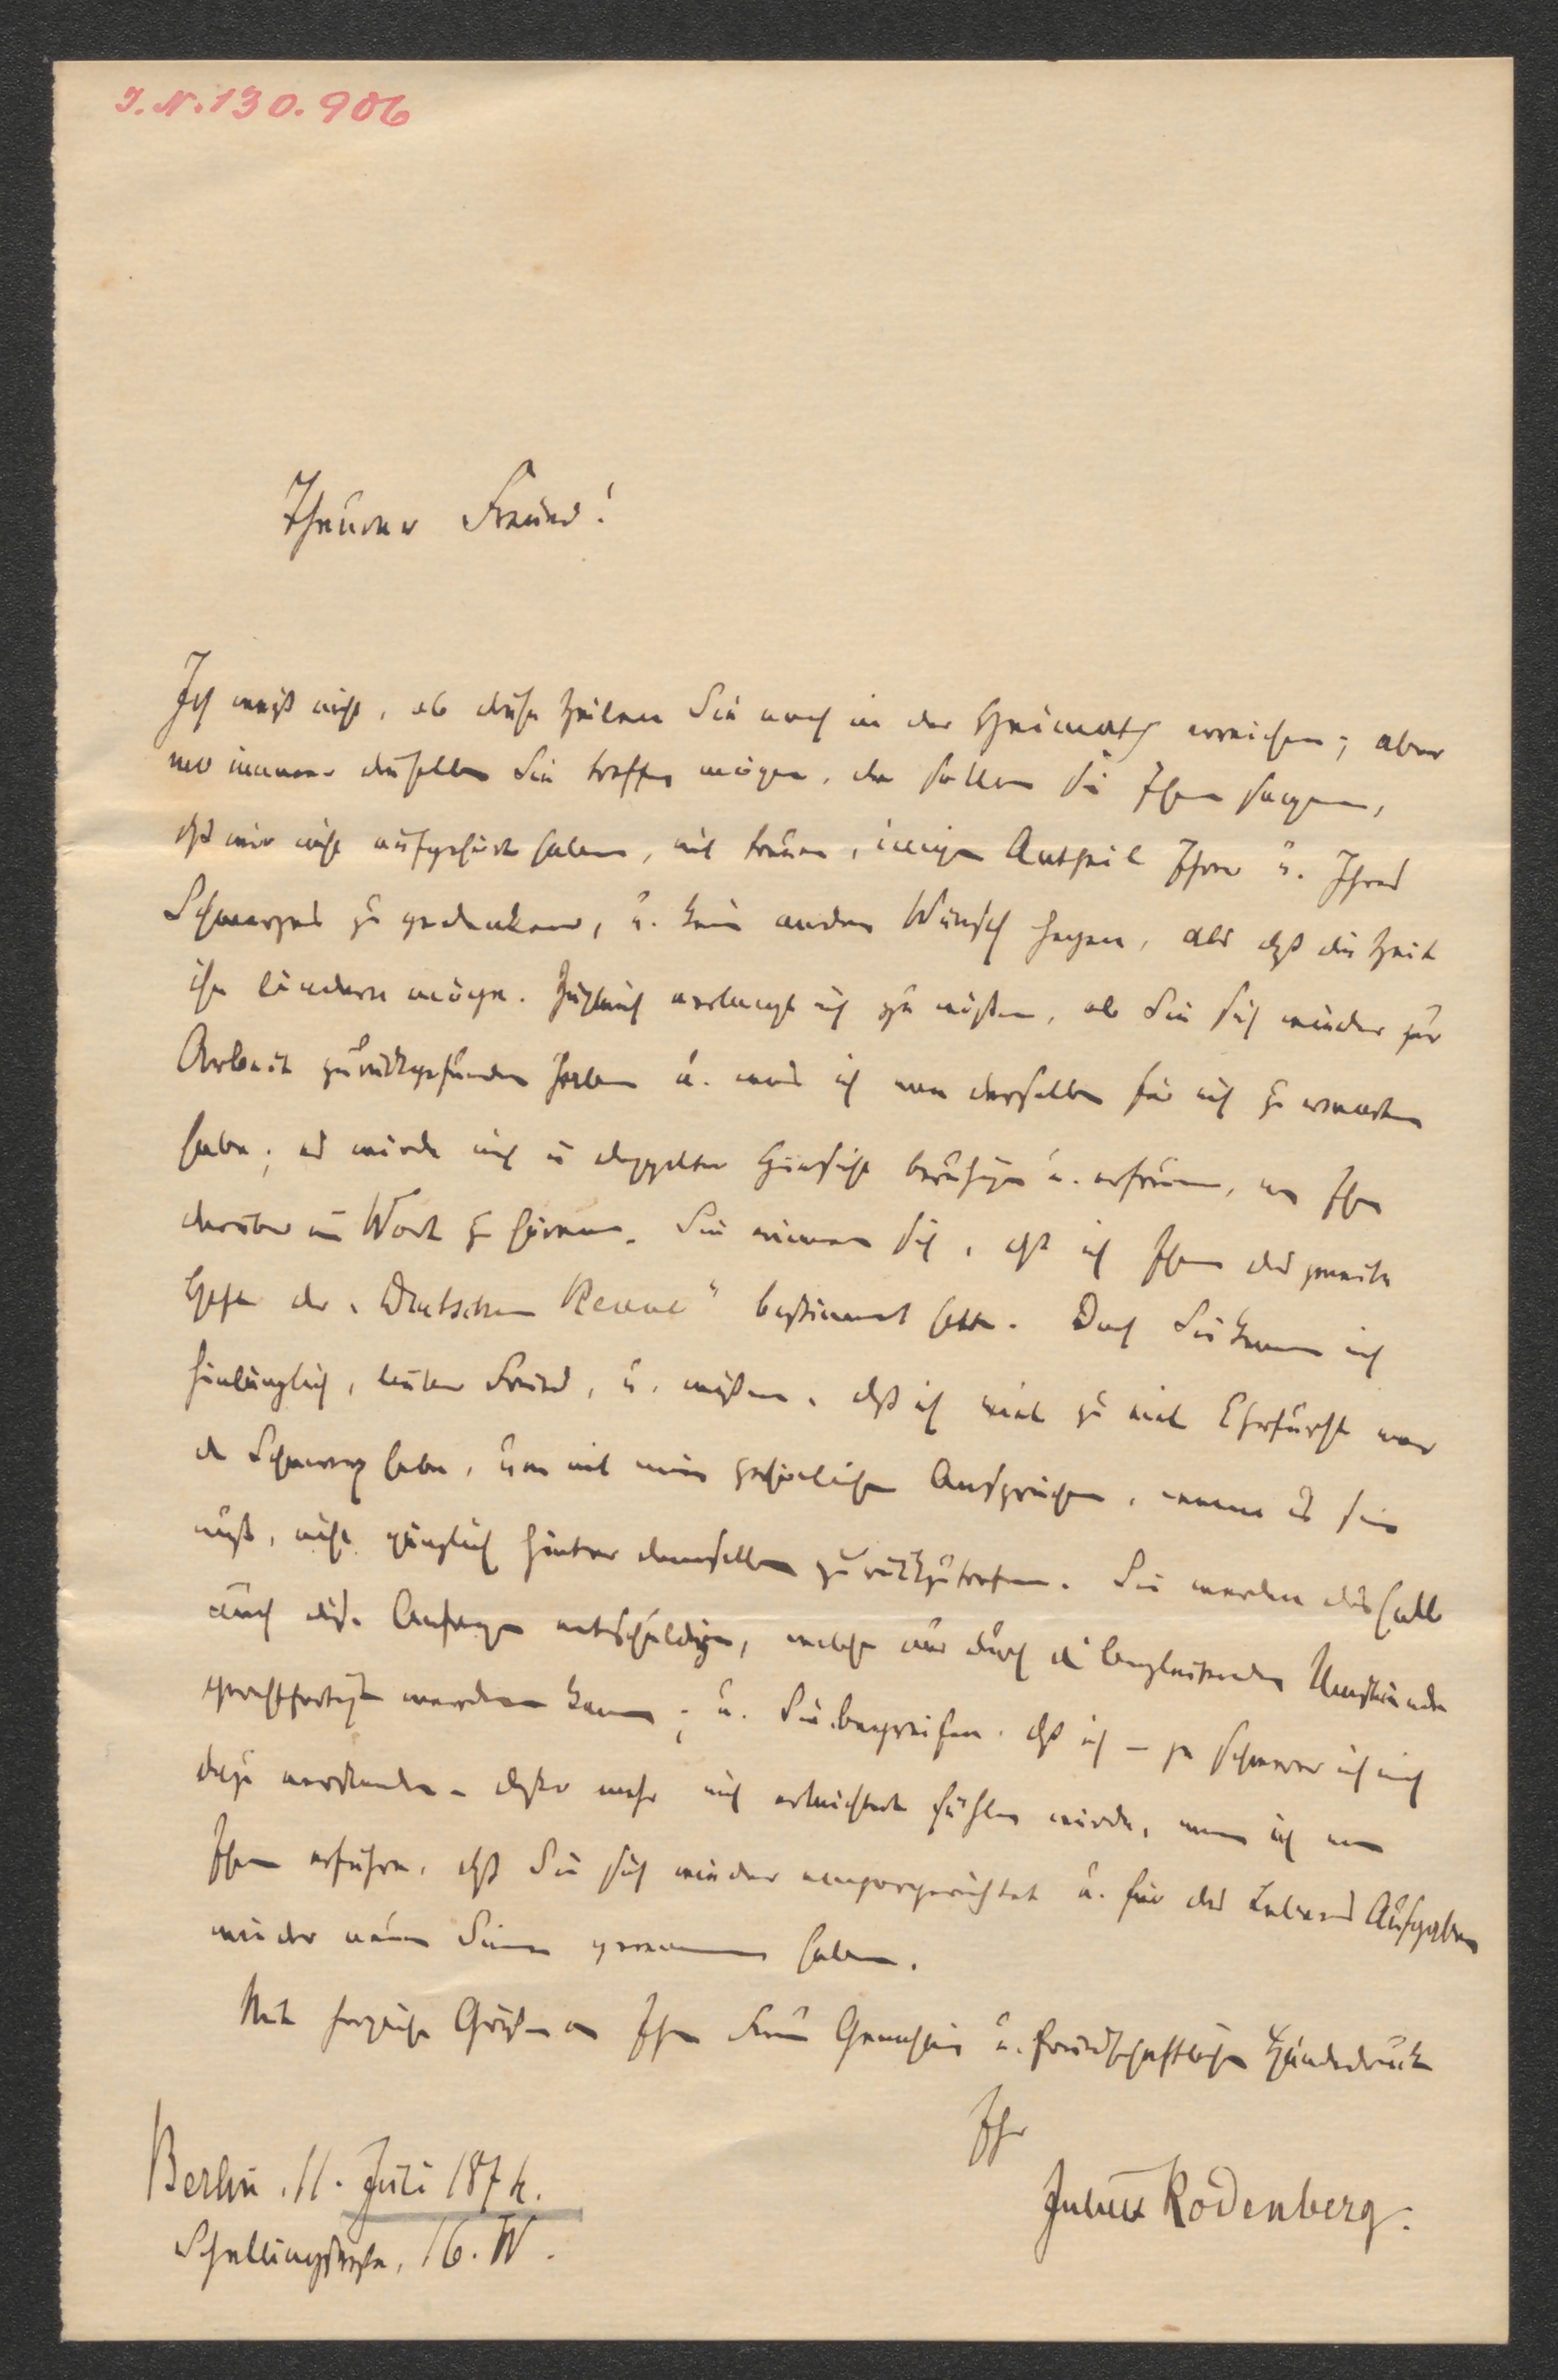 I.N. 130.906
Theurer Freund!
Ich weiß nicht, ob diese Zeilen Sie noch in der Heimath erreichen; aber
wo immer dieselben Sie treffen mögen, da sollen sie Ihnen sagen,
daß wir nicht aufgehört haben, mit treuem, innigem Antheil Ihrer u. Ihres
Schmerzes zu gedenken, u. kein andern Wunsch hegen, als daß die Zeit
ihn lindern möge. Zugleich verlangt mich zu wissen, ob Sie sich wieder zur
Arbeit zurückgefunden haben u. was ich von derselben für mich zu erwarten
habe; es würde mich in doppelter Hinsicht beruhigen u. erfreuen, von Ihnen
darüber ein Wort zu hören. Sie erinnern sich, daß ich Ihnen das zweite
Heft der „Deutschen Revue“ bestimmt hatte. Doch Sie kennen mich
hinlänglich, lieber Freund, u. wissen, daß ich viel zu viel Ehrfurcht vor
dem Schmerz habe, um mit meinen Ansprüchen, wenn es sein
muß, nicht gänzlich hinter demselben zurückzutreten. Sie werden deshalb
auch diese Anfrage entschuldigen, welche nur durch die begleitenden Umstände
gerechtfertigt werden kann; u. Sie begreifen, daß ich – je schwerer ich mich
dazu verstanden – desto mehr mich erleichtert fühlen würde, wenn ich von
Ihnen erführe, daß Sie sich wieder emporgerichtet u. für des Lebens Aufgaben
wieder neuen Sinn gewonnen haben.
Mit herzlichen Grüßen an Ihre Frau Gemahlin u. freundschaftlichem Händedruck
Ihr
Julius Rodenberg.
Berlin, 11. Juli 1874.
Schellingstraße, 16. W.